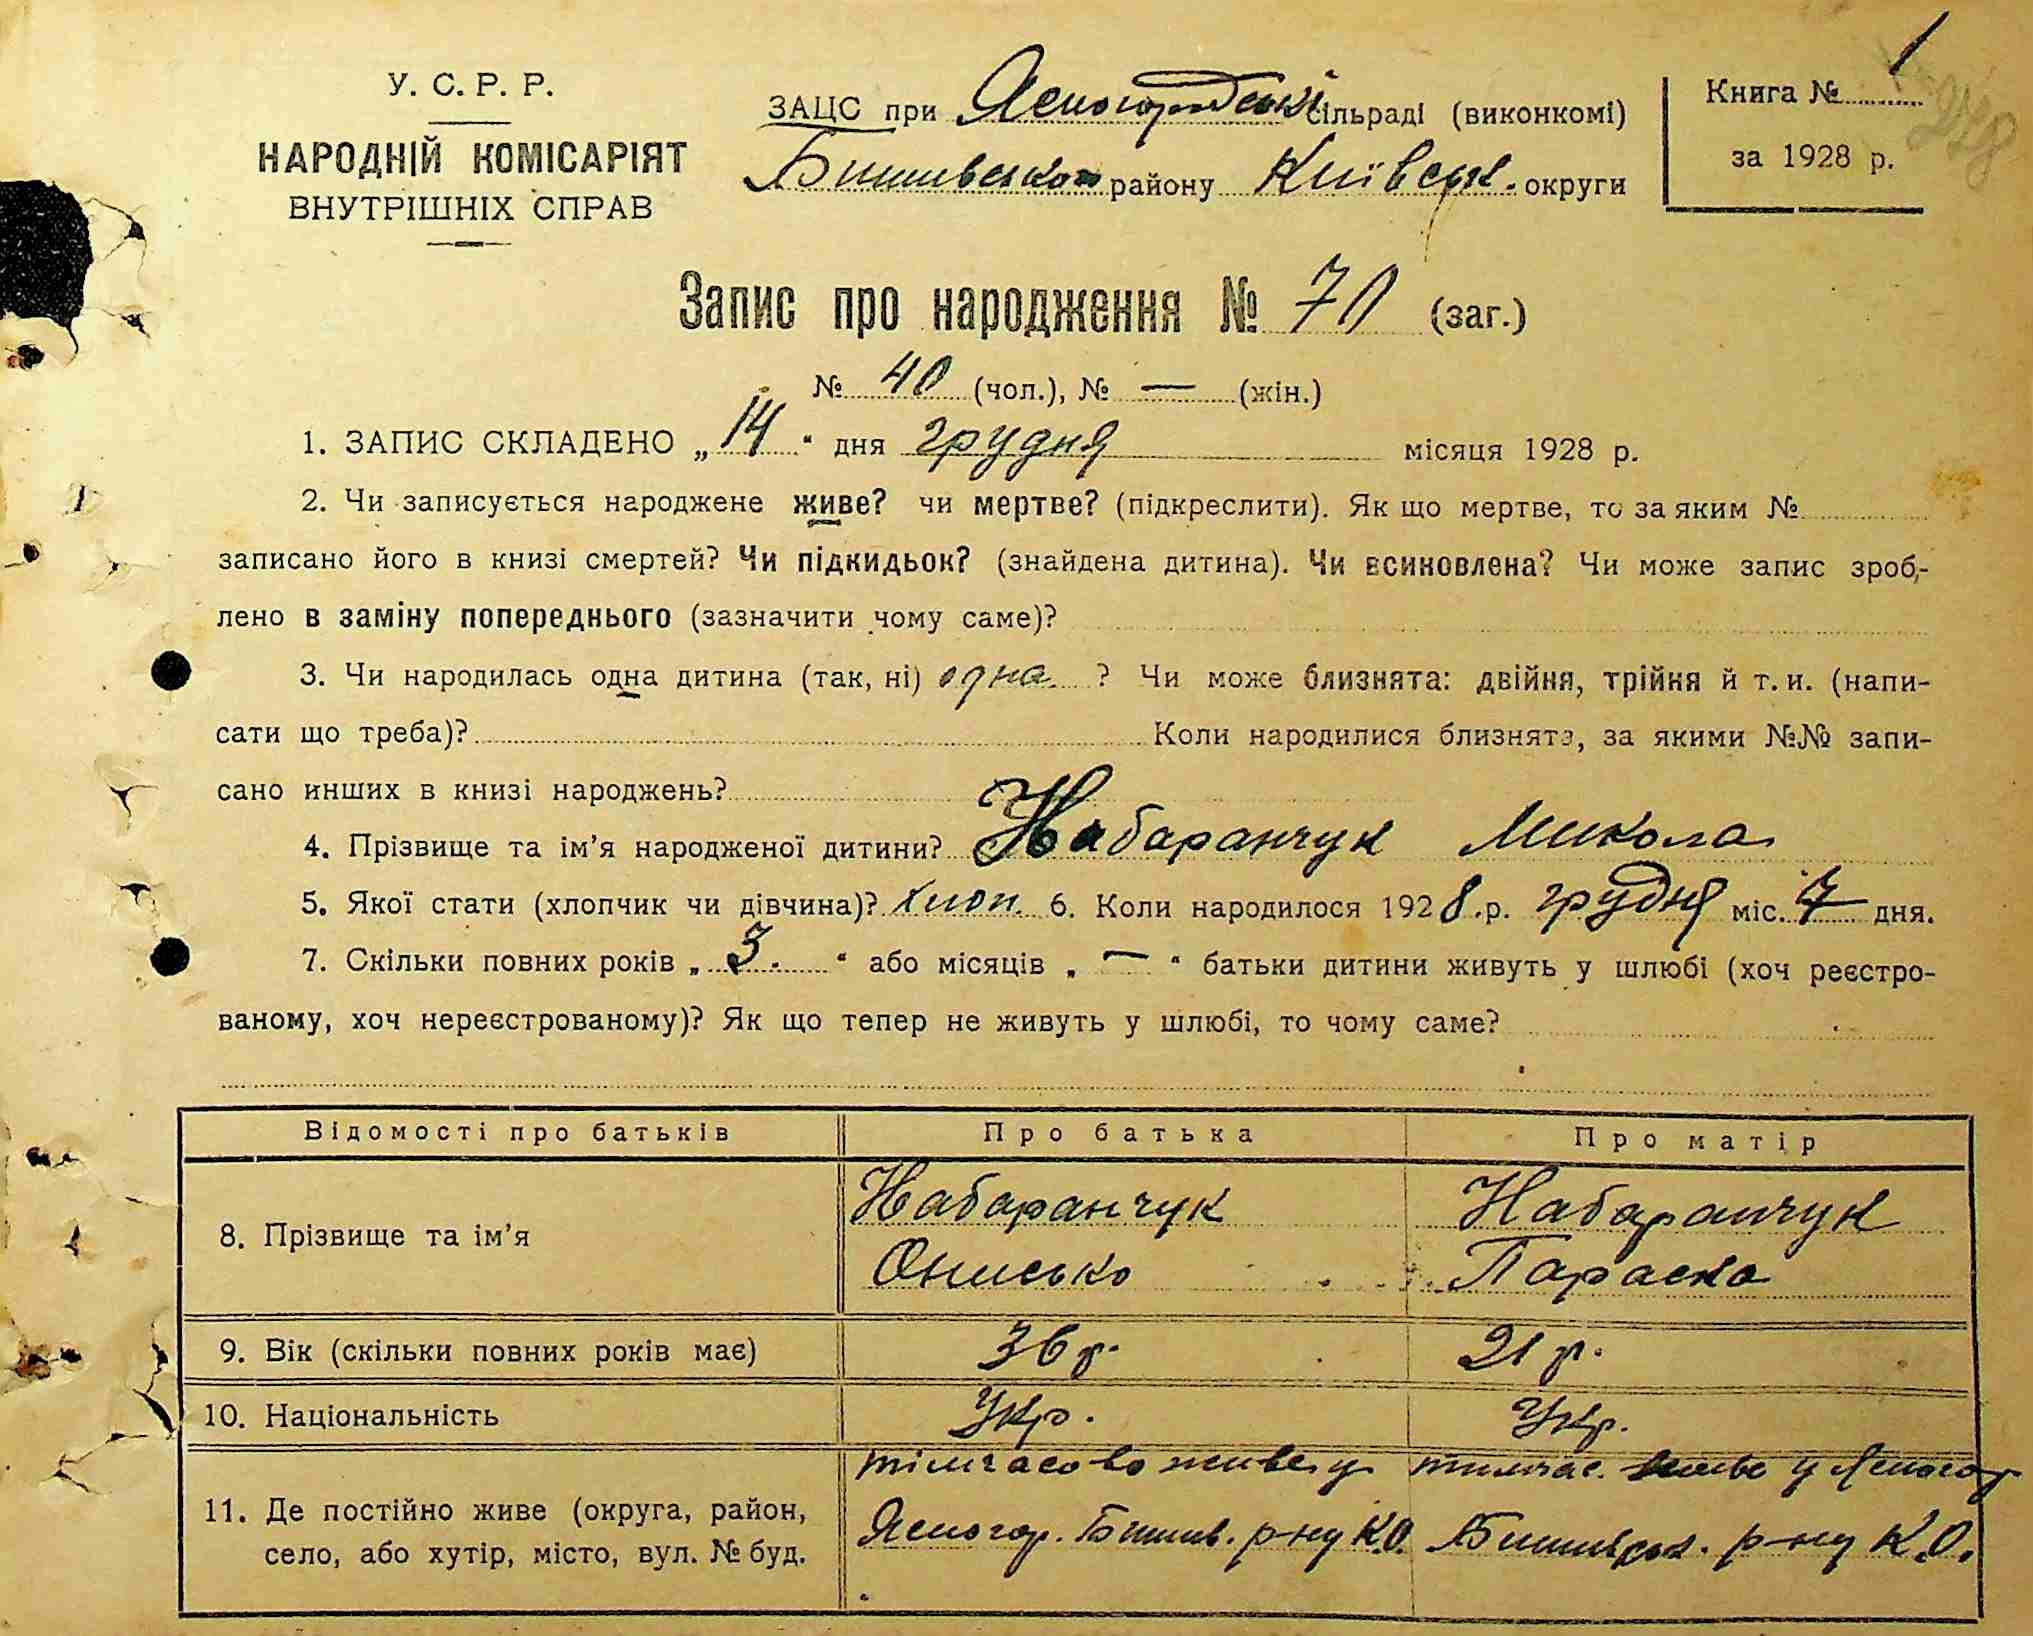 У. С. Р. Р.
НАРОДНІЙ КОМІСАРІЯТ
ВНУТРІШНІХ СПРАВ
ЗАЦС при Ясногородській сільраді (виконкомі)
Бишивського району Київськ. округи
Книга № 1
за 1928 р.
Запис про народження № 70 (заг.)
№ 40 (чол.), № — (жін.)
1. ЗАПИС СКЛАДЕНО „14“ дня грудня місяця 1928 р.
2. Чи записується народжене живе? чи мертве? (підкреслити). Як що мертве, то за яким №
записано його в книзі смертей? Чи підкидьок? (знайдена дитина). Чи всиновлена? Чи може запис зроб-
лено в заміну попереднього (зазначити чому саме)?
3. Чи народилась одна дитина (так, ні) одна ? Чи може близнята: двійня, трійня й т. и. (напи-
сати що треба)? Коли народилися близнята, за якими №№ запи-
сано инших в книзі народжень?
4. Прізвище та ім’я народженої дитини? Набаранчук Микола
5. Якої стати (хлопчик чи дівчина)? хлоп. 6. Коли народилося 1928 р. грудня міс. 7 дня.
7. Скільки повних років „3.“ або місяців „—“ батьки дитини живуть у шлюбі (хоч реєстро-
ваному, хоч нереєстрованому)? Як що тепер не живуть у шлюбі, то чому саме?
Відомості про батьків Про батька Про матір
8. Прізвище та ім’я Набаранчук Онисько Набаранчук Параска
9. Вік (скільки повних років має) 36 р. 21 р.
10. Національність Укр. Укр.
11. Де постійно живе (округа, район,
село, або хутір, місто, вул. № буд.
тімчасово живе у
Ясногор. Бишив. р-ну К.О.
тимчас. живе у Ясногор
Бишивськ. р-ну К.О.